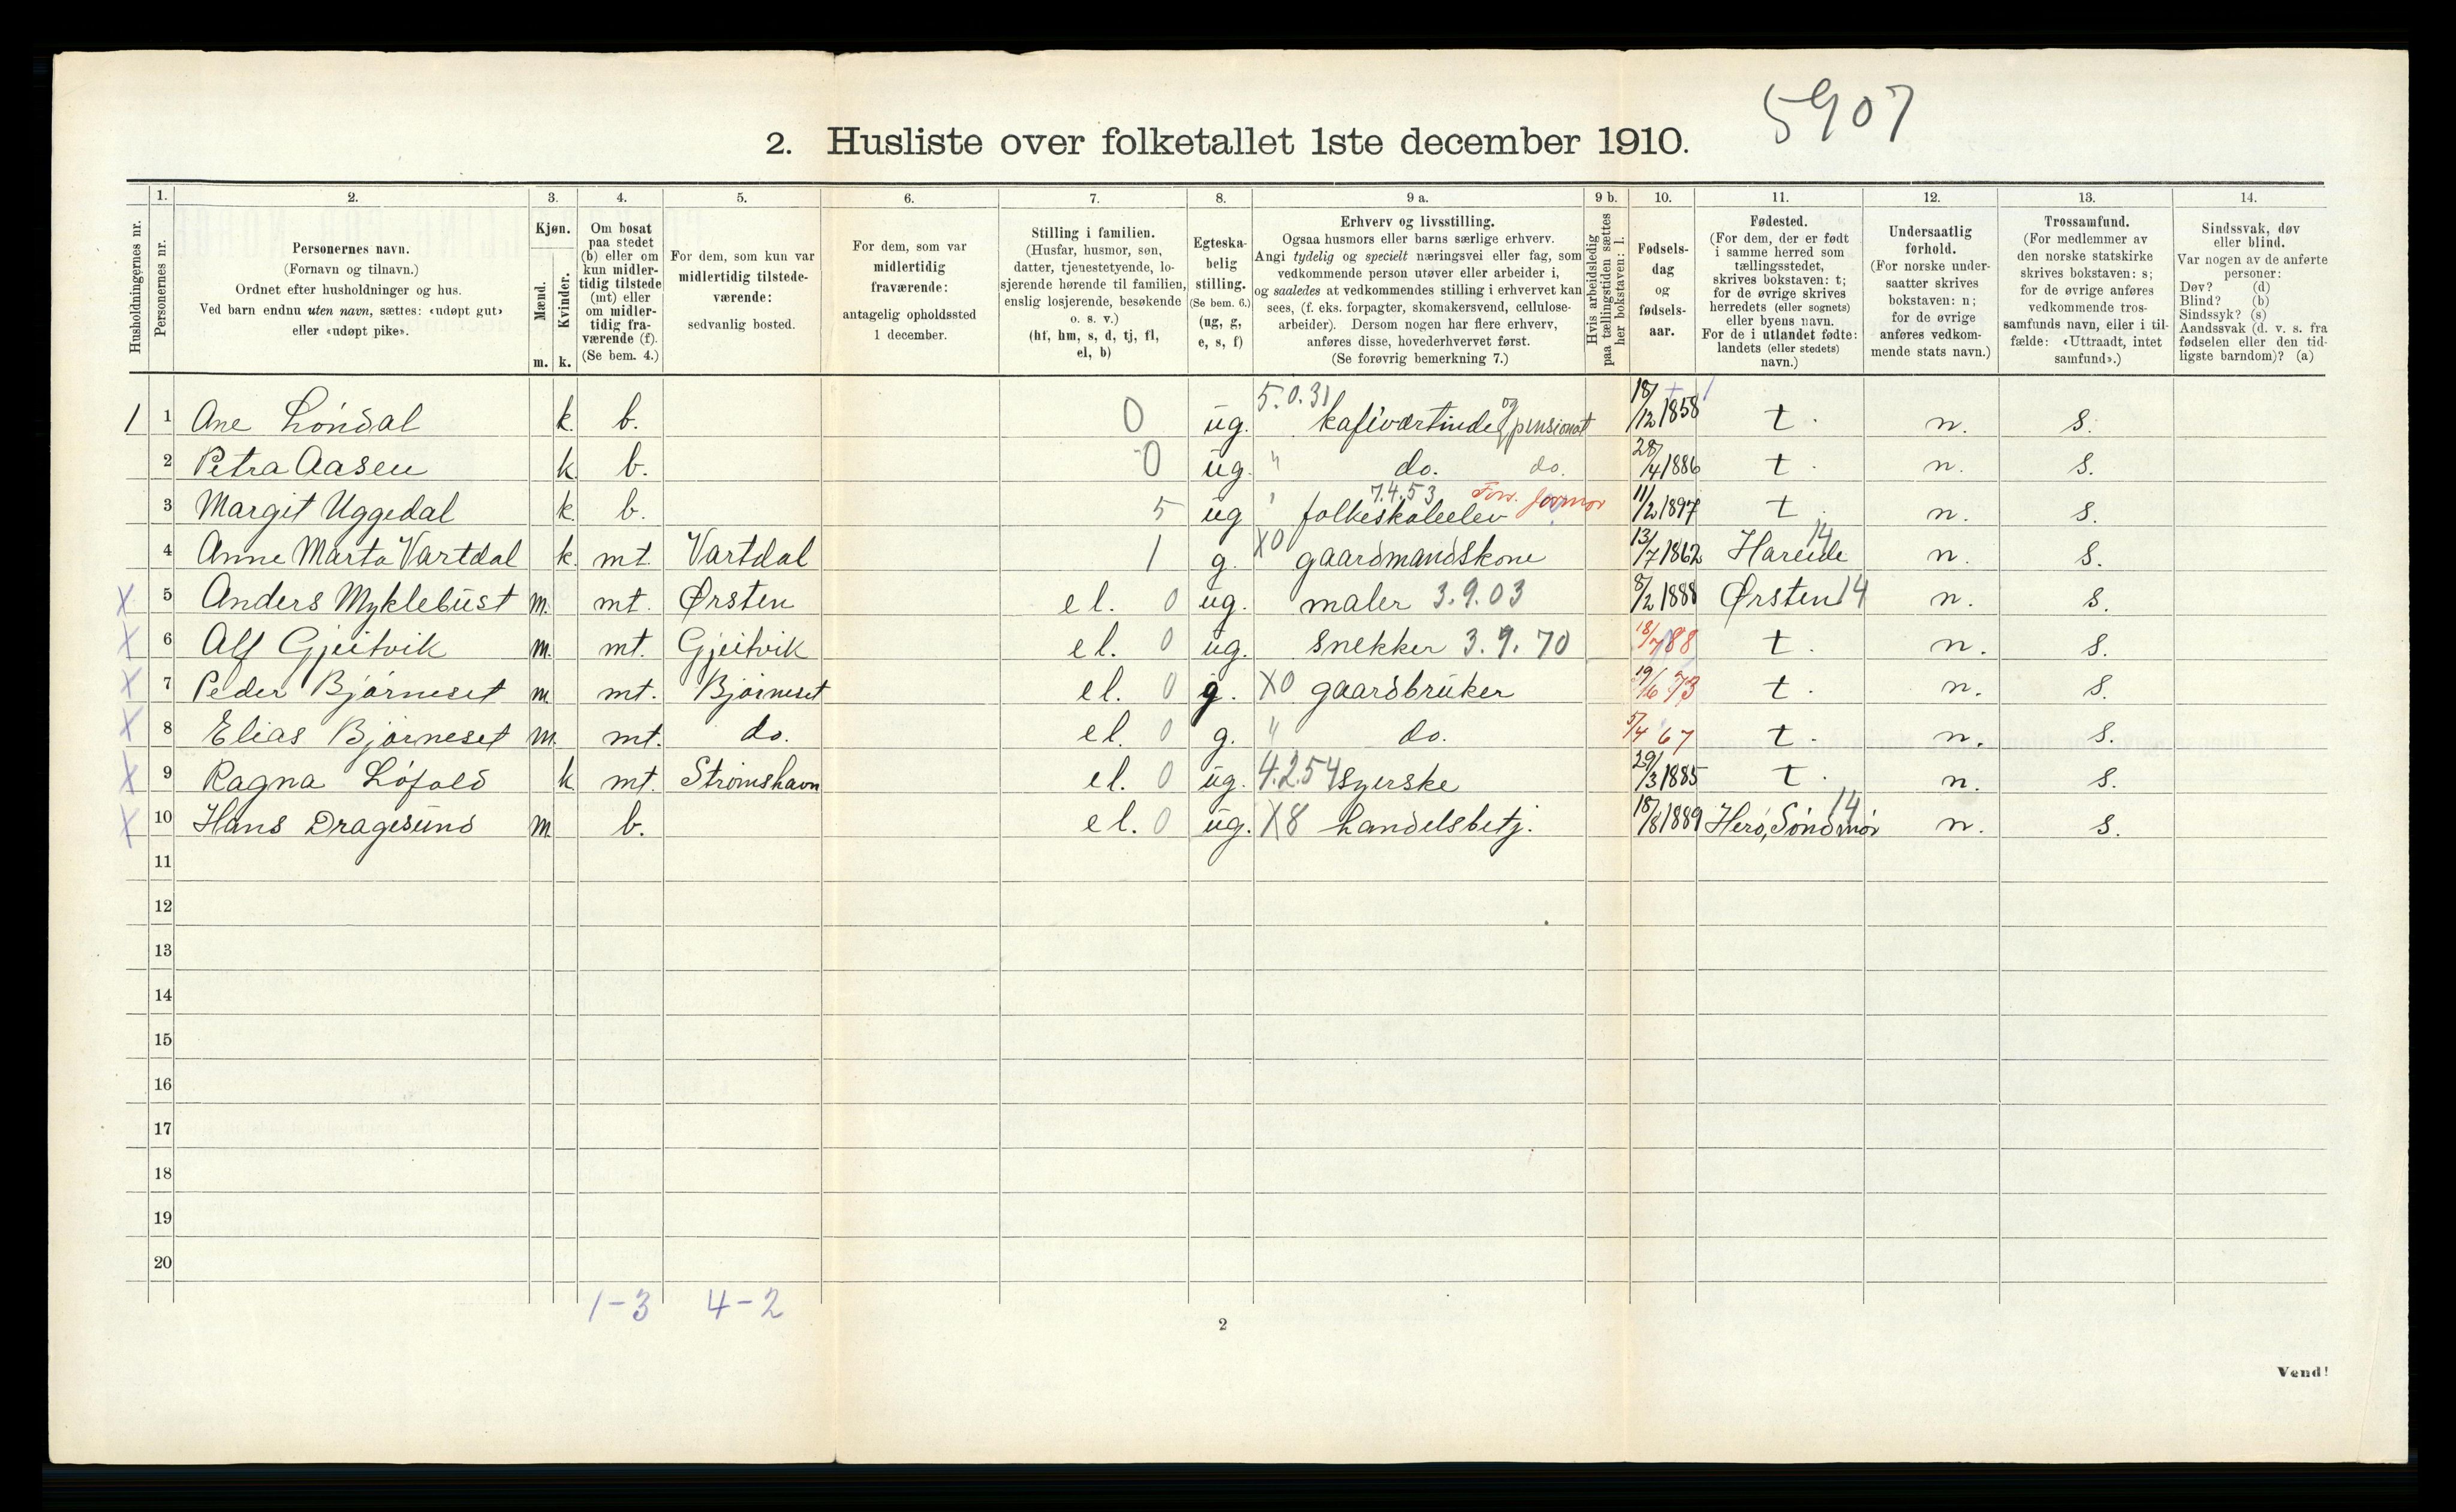 5907
2. Husliste over folketallet 1ste december 1910.
Husholdningernes nr.
1. Personernes nr.
2. Personernes navn. (Fornavn og tilnavn.) Ordnet efter husholdninger og hus. Ved barn endnu uten navn, sættes: «udøpt gut» eller «udøpt pike».
3. Kjøn. Mænd. m. Kvinder. k.
4. Om bosat paa stedet (b) eller om kun midlertidig tilstede (mt) eller om midlertidig fraværende (f). (Se bem. 4.)
5. For dem, som kun var midlertidig tilstedeværende: sedvanlig bosted.
6. For dem, som var midlertidig fraværende: antagelig opholdssted 1 december.
7. Stilling i familien. (Husfar, husmor, søn, datter, tjenestetyende, losjerende hørende til familien, enslig losjerende, besøkende o. s. v.) (hf, hm, s, d, tj, fl, el, b)
8. Egteskabelig stilling. (Se bem. 6.) (ug, g, e, s, f)
9 a. Erhverv og livsstilling. Ogsaa husmors eller barns særlige erhverv. Angi tydelig og specielt næringsvei eller fag, som vedkommende person utøver eller arbeider i, og saaledes at vedkommendes stilling i erhvervet kan sees, (f. eks. forpagter, skomakersvend, cellulosearbeider). Dersom nogen har flere erhverv, anføres disse, hovederhvervet først. (Se forøvrig bemerkning 7.)
9 b. Hvis arbeidsledig paa tællingstiden sættes her bokstaven: l.
10. Fødselsdag og fødselsaar.
11. Fødested. (For dem, der er født i samme herred som tællingsstedet, skrives bokstaven: t; for de øvrige skrives herredets (eller sognets) eller byens navn. For de i utlandet fødte: landets (eller stedets) navn.)
12. Undersaatlig forhold. (For norske undersaatter skrives bokstaven: n; for de øvrige anføres vedkommende stats navn.)
13. Trossamfund. (For medlemmer av den norske statskirke skrives bokstaven: s; for de øvrige anføres vedkommende trossamfunds navn, eller i tilfælde: «Uttraadt, intet samfund».)
14. Sindssvak, døv eller blind. Var nogen av de anførte personer: Døv? (d) Blind? (b) Sindssyk? (s) Aandssvak (d. v. s. fra fødselen eller den tidligste barndom)? (a)
1 1 Ane Londal k. b. 0 ug. 5.0.31 kafeværtinde og pensionat 18/12 1858 t. n. s.
2 Petra Aasen k. b. 0 ug. " do. do. 28/4 1886 t. n. s.
3 Margit Uggedal k. b. 5 ug ' folkeskoleelev 7.4.53 Fors. 11/2 1897 t. n. s.
4 Anne Marta Vartdal k. mt. Vartdal 1 g. X0 gaardmandskone 13/7 1862 Hareide 14 n. s.
X 5 Anders Myklebust m. mt. Ørsten el. 0 ug. maler 3.9.03 8/2 1888 Ørsten 14 n. s.
X 6 Alf Gjeitvik m. mt. Gjeitvik el. 0 ug. snekker 3.9.70 18/7 88 t. n. s.
X 7 Peder Bjørneset m. mt. Bjørneset el. 0 g. X0 gaardbruker 19/6 73 t. n. s.
X 8 Elias Bjørneset m. mt. do. el. 0 g. " do. 5/4 67 t. n. s.
X 9 Ragna Lófald k mt. Strømshavn el. 0 ug. 4.2.54 syerske 29/3 1885 t. n. s.
X 10 Hans Dragesund m. b. el. 0 ug. X8 handelsbetj. 18/8 1889 Herø, Søndmør 14 n. s.
11
12
13
14
15
16
17
18
19
20
1-3 4-2
2
Vend!